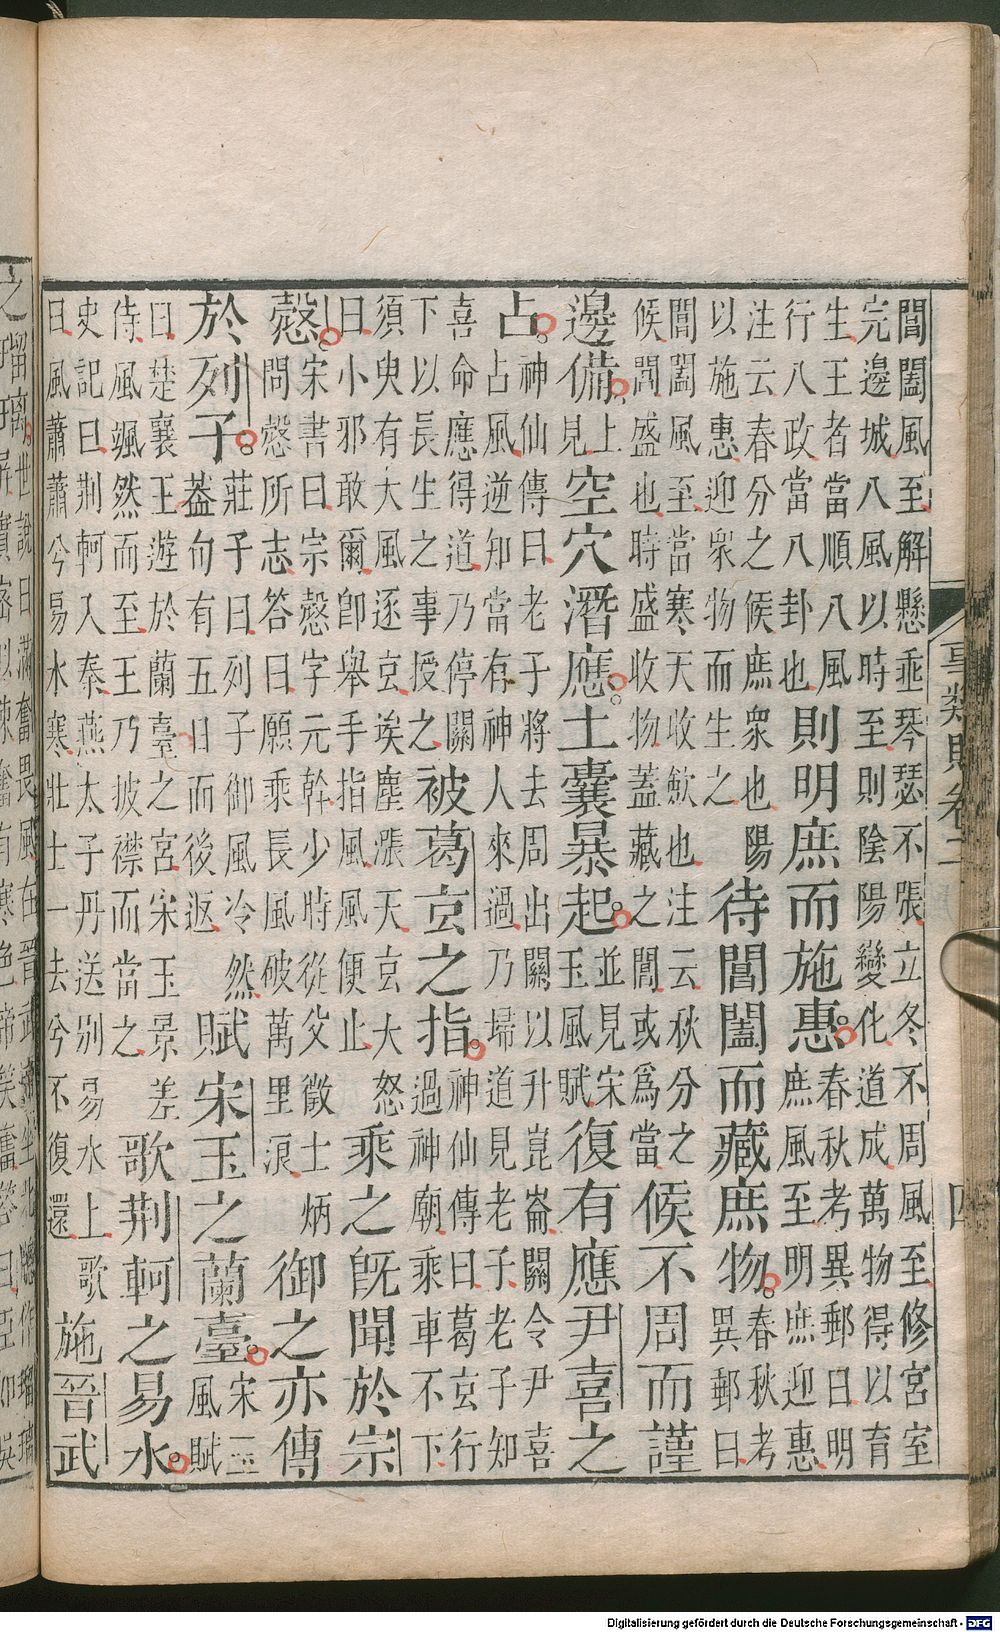 閶闔風至解懸垂琴瑟不張立冬不周風至修宮室
完邊城八風以時至則陰陽變化道成萬物得以育
生王者當順八風
行八政當八卦也
則明庶而施惠
春秋考異郵曰明
庶風至明庶迎惠
注云春分之候庶衆也陽
以施惠迎衆物而生之
待閶闔而藏庶物
春秋考
異郵曰
閶闔風至當寒天收歛也注云秋分之
候閶盛也時盛收物蓋藏之閶或爲當
候不周而謹
邊備
上
見
空穴潛應土囊暴起
並見宋
玉風賦
復有應尹喜之
占
神仙傳曰老于將去周出關以升崑崙關令尹喜
占風逆知當有神人來過乃埽道見老子老子知
喜命應得道乃停關
下以長生之事授之
被葛玄之指
神仙傳曰葛玄行
過神廟乘車不下
須臾有大風逐玄埃塵漲天玄大怒
曰小邪敢爾卽舉手指風風便止
乘之旣聞於宗
愨
宋書曰宗愨字元幹少時從父徵士炳
問愨所志答曰願乘長風破萬里浪
御之亦傳
於列子
莊子曰列子御風冷然
葢旬有五日而後返
賦宋玉之蘭臺
宋玉
風賦
曰楚襄王遊於蘭臺之宮宋玉景差
侍風颯然而至王乃披襟而當之
歌荆軻之易水
史記曰荆軻入秦燕太子丹送别易水上歌
曰風蕭蕭兮易水寒壯士一去兮不復還
施晉武
事類賦卷二
四
之瑠璃
世說曰滿奮畏風在晉武帝坐北牕作瑠璃
Digitalisierung gefördert durch die Deutsche Forschungsgemeinschaft - DFG